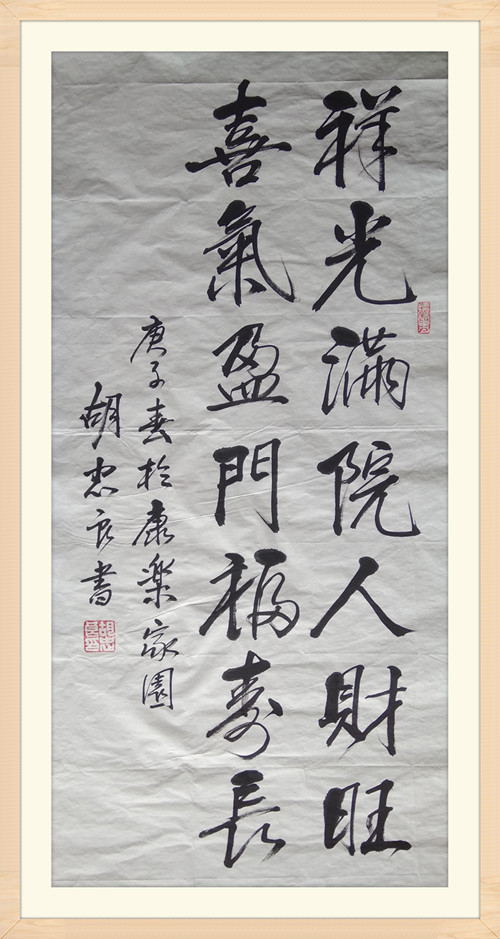 祥光滿院人財旺
喜氣盈門福壽長
庚子春於康樂家園
胡忠良書